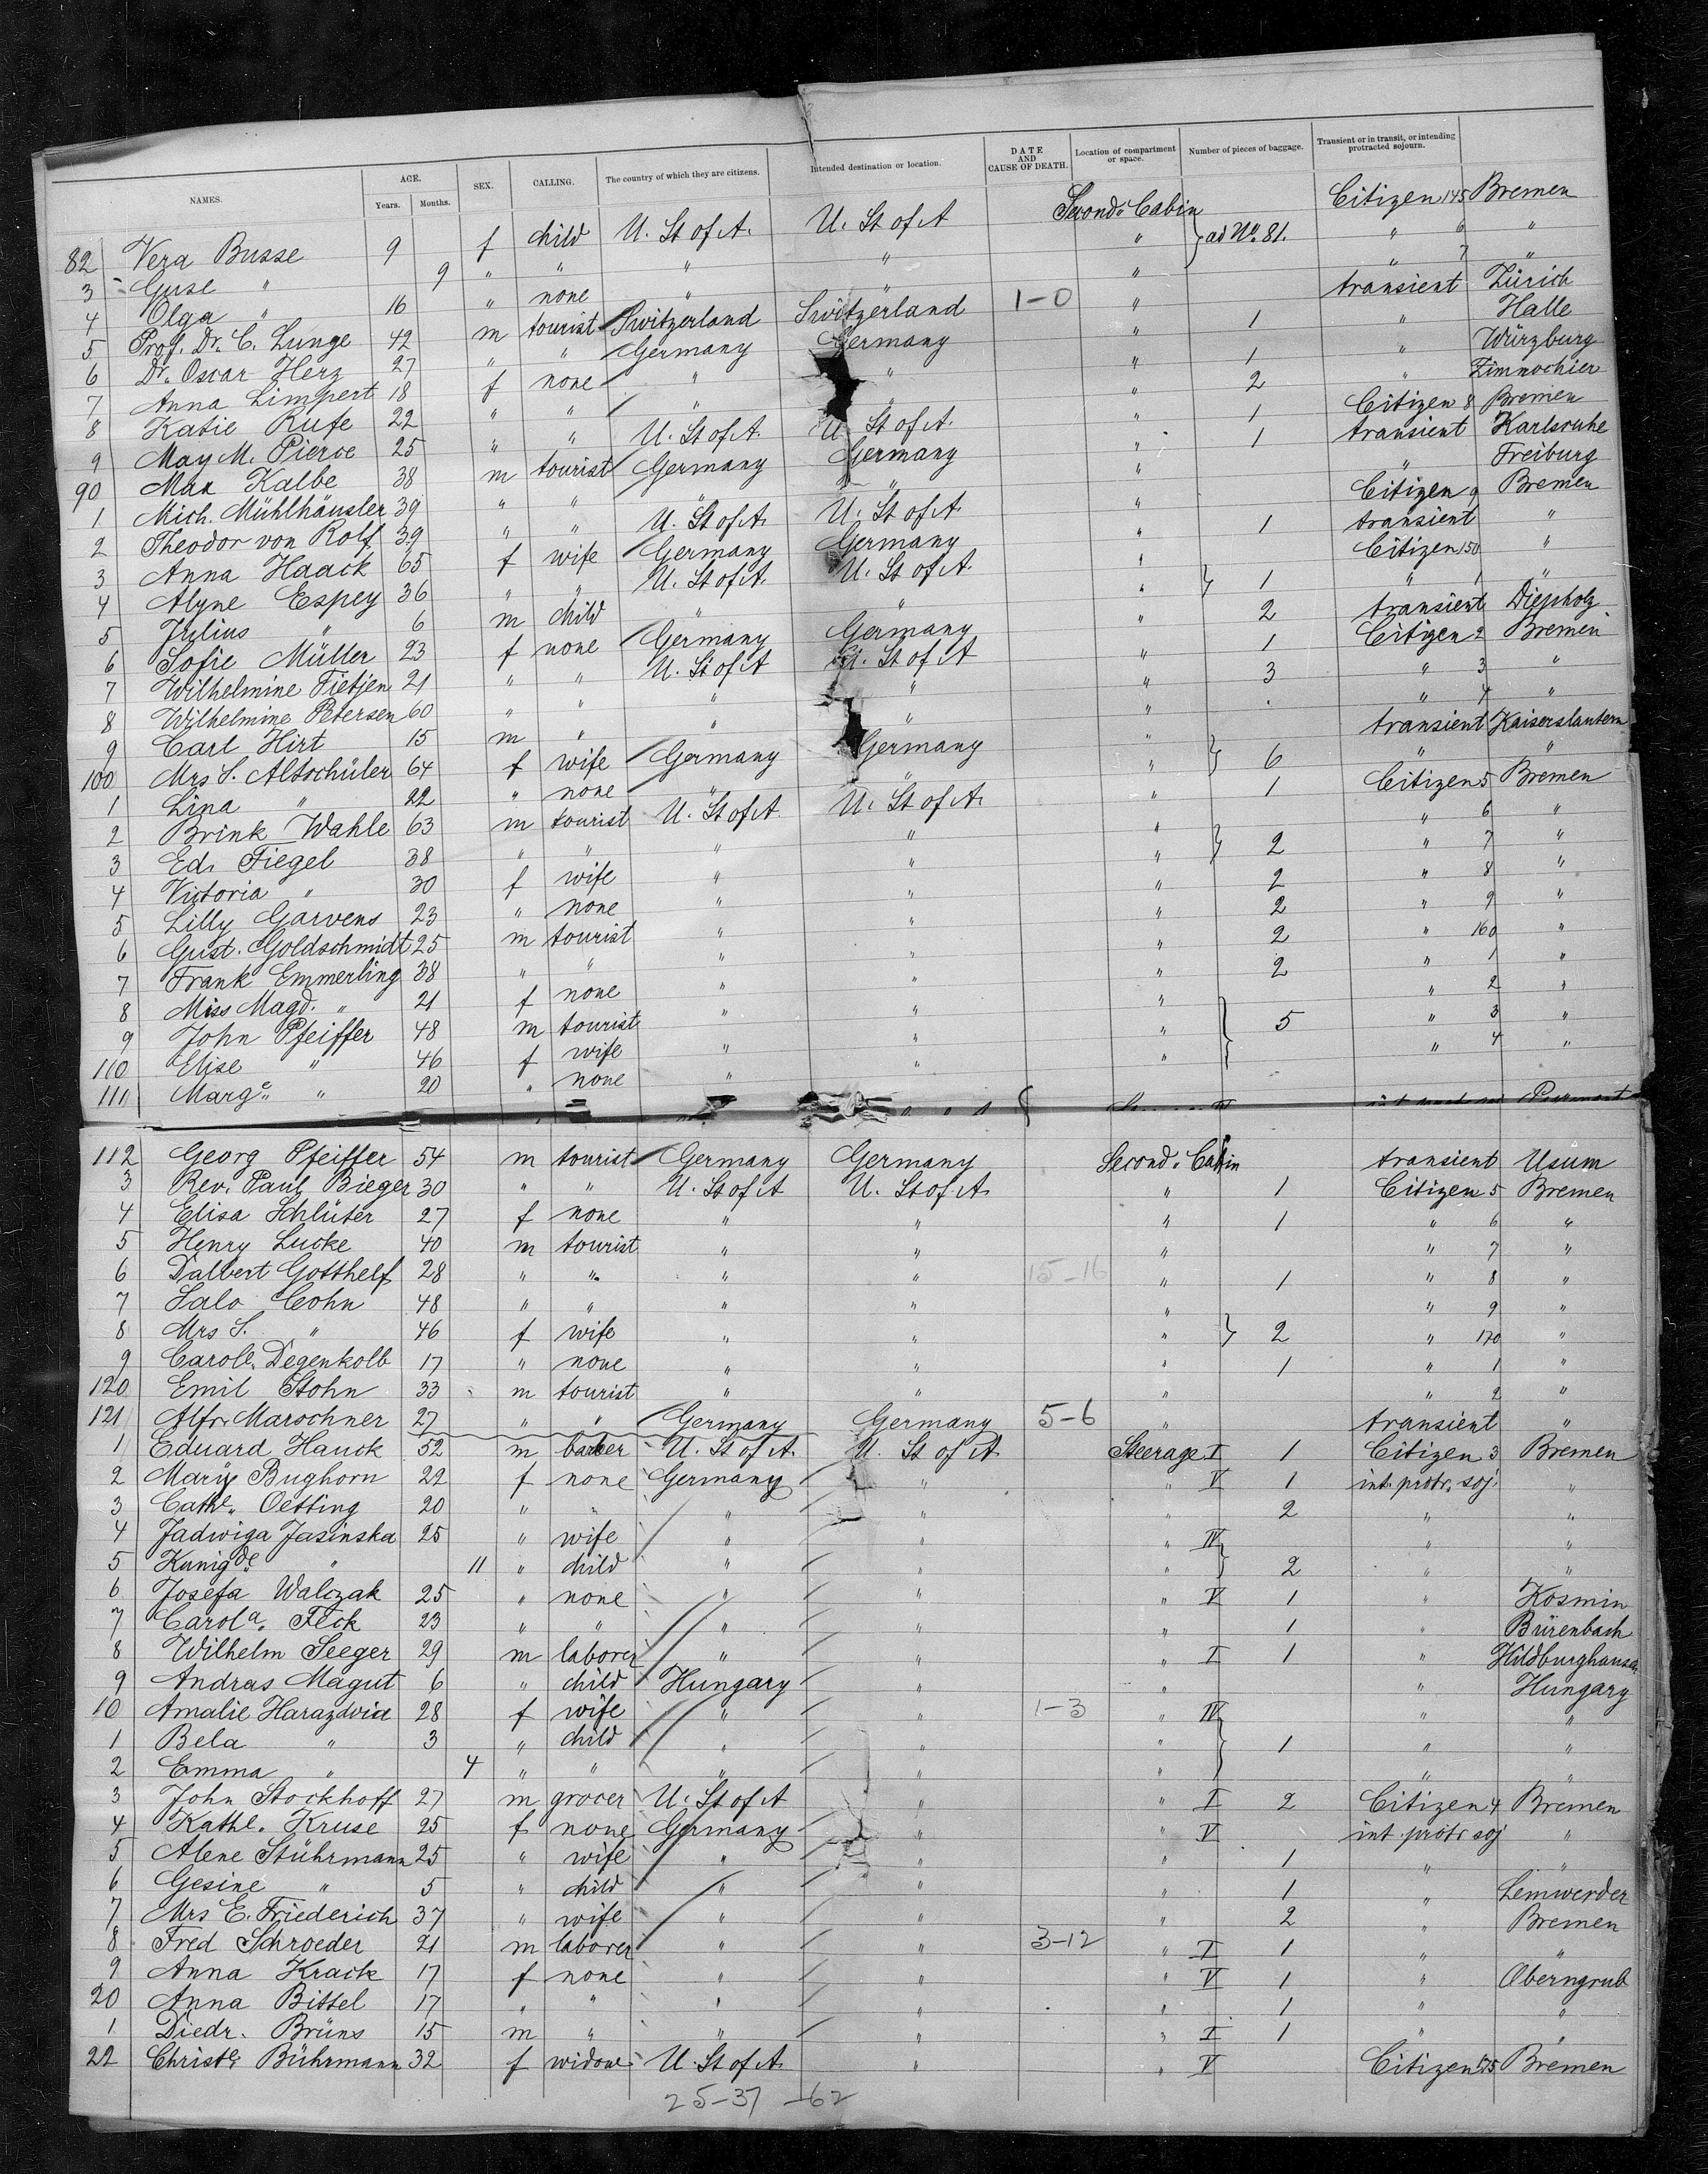 NAMES. AGE. Years. Months. SEX. CALLING. The country of which they are citizens. Intended destination or location. DATE AND CAUSE OF DEATH. Location of compartment or space. Number of pieces of baggage. Transient or in transit, or intending protracted sojourn.
82 Vera Busse 9 f child U. St of A. U. St of A Second Cabin } ad No. 81. Citizen 145 Bremen
3 " 9 " " " " " " 6 "
4 Olga " 16 " none " " " " 7 "
5 Prof. Dr. C. Lunge 42 m tourist Switzerland Switzerland 1-0 " transient Zürich
6 Dr. Oscar Herz 27 " " Germany Germany " 1 " Halle
7 Anna Limpert 18 f none " " " 1 " Würzburg
8 Katie Rufe 22 " " " " " 2 "
9 May M. Pierce 25 " " U. St of A. U. St of A. " 1 Citizen 8 Bremen
90 Max Kalbe 38 m tourist Germany Germany " 1 transient Karlsruhe
1 Mich. Mühlhäusler 39 " " " " " " Freiburg
2 Theodor von Rolf 39 " " U. St of A. U. St of A. " Citizen 9 Bremen
3 Anna Haack 65 f wife Germany Germany " 1 transient "
4 Alyne Espey 36 " " U. St of A. U. St of A. " } 1 Citizen 150 "
5 Julius " 6 m child " " " " 1 "
6 Sofie Müller 23 f none Germany Germany " 2 transient Diepholz
7 Wilhelmine Tietjen 21 " " U. St of A U. St of A " 1 Citizen 2 Bremen
8 Wilhelmine Petersen 60 " " " " " 3 " 3 "
9 Carl Hirt 15 m " " " " " 4 "
100 Mrs S. Altschüler 64 f wife Germany Germany " } 6 transient Kaiserslautern
1 Lina " 22 " none " " " " "
2 Brink Wahle 63 m tourist U. St of A. U. St of A. " 1 Citizen 5 Bremen
3 Ed. Fiegel 38 " " " " " } 2 " 6 "
4 Victoria " 30 f wife " " " " 7 "
5 Lilly Garvens 23 " none " " " 2 " 8 "
6 Gust. Goldschmidt 25 m tourist " " " 2 " 9 "
7 Frank Emmerling 38 " " " " " 2 " 160 "
8 Miss Magd. " 21 f none " " " 2 " 1 "
9 John Pfeiffer 48 m tourist " " " } 5 " 2 "
110 Elise " 46 f wife " " " " 3 "
111 Marge. " 20 " none " " " " 4 "
112 Georg Pfeiffer 54 m tourist Germany Germany Second Cabin transient Usum
3 Rev. Paul Bieger 30 " " U. St of A U. St of A. " 1 Citizen 5 Bremen
4 Elisa Schlüter 27 f none " " " 1 " 6 "
5 Henry Lucke 40 m tourist " " " " 7 "
6 Dalbert Gotthelf 28 " " " " 15-16 " 1 " 8 "
7 Salo Cohn 48 " " " " " " 9 "
8 Mrs S. " 46 f wife " " " } 2 " 170 "
9 Carole. Degenkolb 17 " none " " " 1 " 1 "
120 Emil Stohn 33 m tourist " " " " 2 "
121 Alfr. Marschner 27 " " Germany Germany 5-6 " transient "
1 Eduard Hauck 52 m barber U. St of A. U. St of A. Steerage I 1 Citizen 3 Bremen
2 Mary Bughorn 22 f none Germany " " V 1 int. protr. soj. "
3 Cathe. Oetting 20 " " " " " 2 " "
4 Jadwiga Jasinska 25 " wife " " " IV } 2 " "
5 Kunigde. " 11 " child " " " " "
6 Josefa Walczak 25 " none " " " V 1 " Kosmin
7 Carola. Feck 23 " " " " " 1 " Bürenbach
8 Wilhelm Seeger 29 m laborer " " " I 1 " Hildburghausen
9 Andras Magut 6 " child Hungary " " " Hungary
10 Amalie Harazdvia 28 f wife " " 1-3 " IV } 1 " "
1 Bela " 3 " child " " " " "
2 Emma " 4 " " " " " " "
3 John Stockhoff 27 m grocer U. St of A " " I 2 Citizen 4 Bremen
4 Kathe. Kruse 25 f none Germany " " V int. protr soj "
5 Alene Stührmann 25 " wife " " " 1 " "
6 Gesine " 5 " child " " " 1 " Lemwerder
7 Mrs E. Friederich 37 " wife " " " 2 " Bremen
8 Fred Schroeder 21 m laborer " " 3-12 " I 1 " "
9 Anna Krack 17 f none " " " V 1 " Oberngrub
20 Anna Bittel 17 " " " " " 1 " "
1 Diedr. Brüns 15 m " " " " I 1 " "
22 Christe. Bührmann 32 f widow U. St of A. " " V Citizen 175 Bremen
25-37 -62